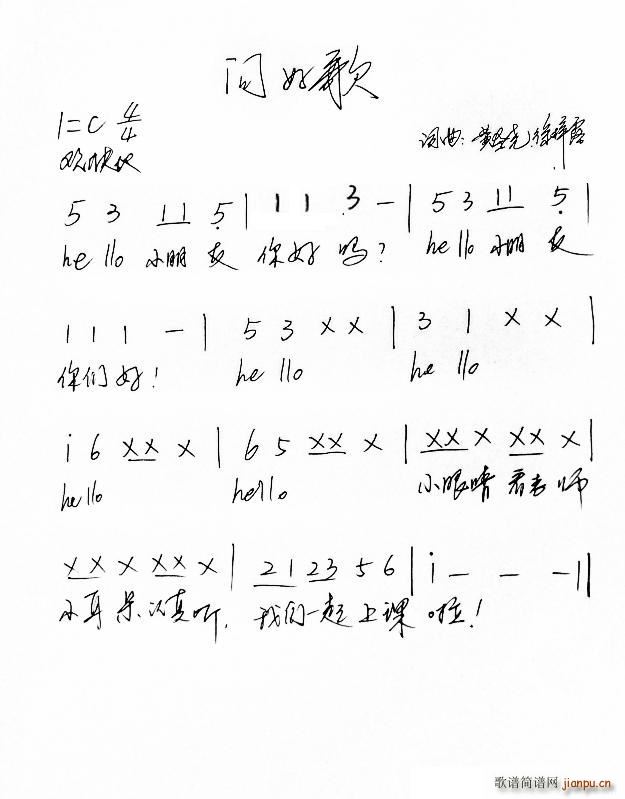 问好歌
1=C 4/4
欢快地
词曲：
5 3 1 1 5 | 1 1 3 - | 5 3 1 1 5 |
hello 小朋友 你好吗？ hello 小朋友
1 1 1 - | 5 3 X X | 3 1 X X |
你们好！ hello hello
i 6 XX X | 6 5 XX X | XX X XX X |
hello hello 小眼睛 看老师
XX X XX X | 2 1 2 3 5 6 | i - - - ||
小耳朵认真听， 我们一起上课啦！
歌谱简谱网
jianpu.cn